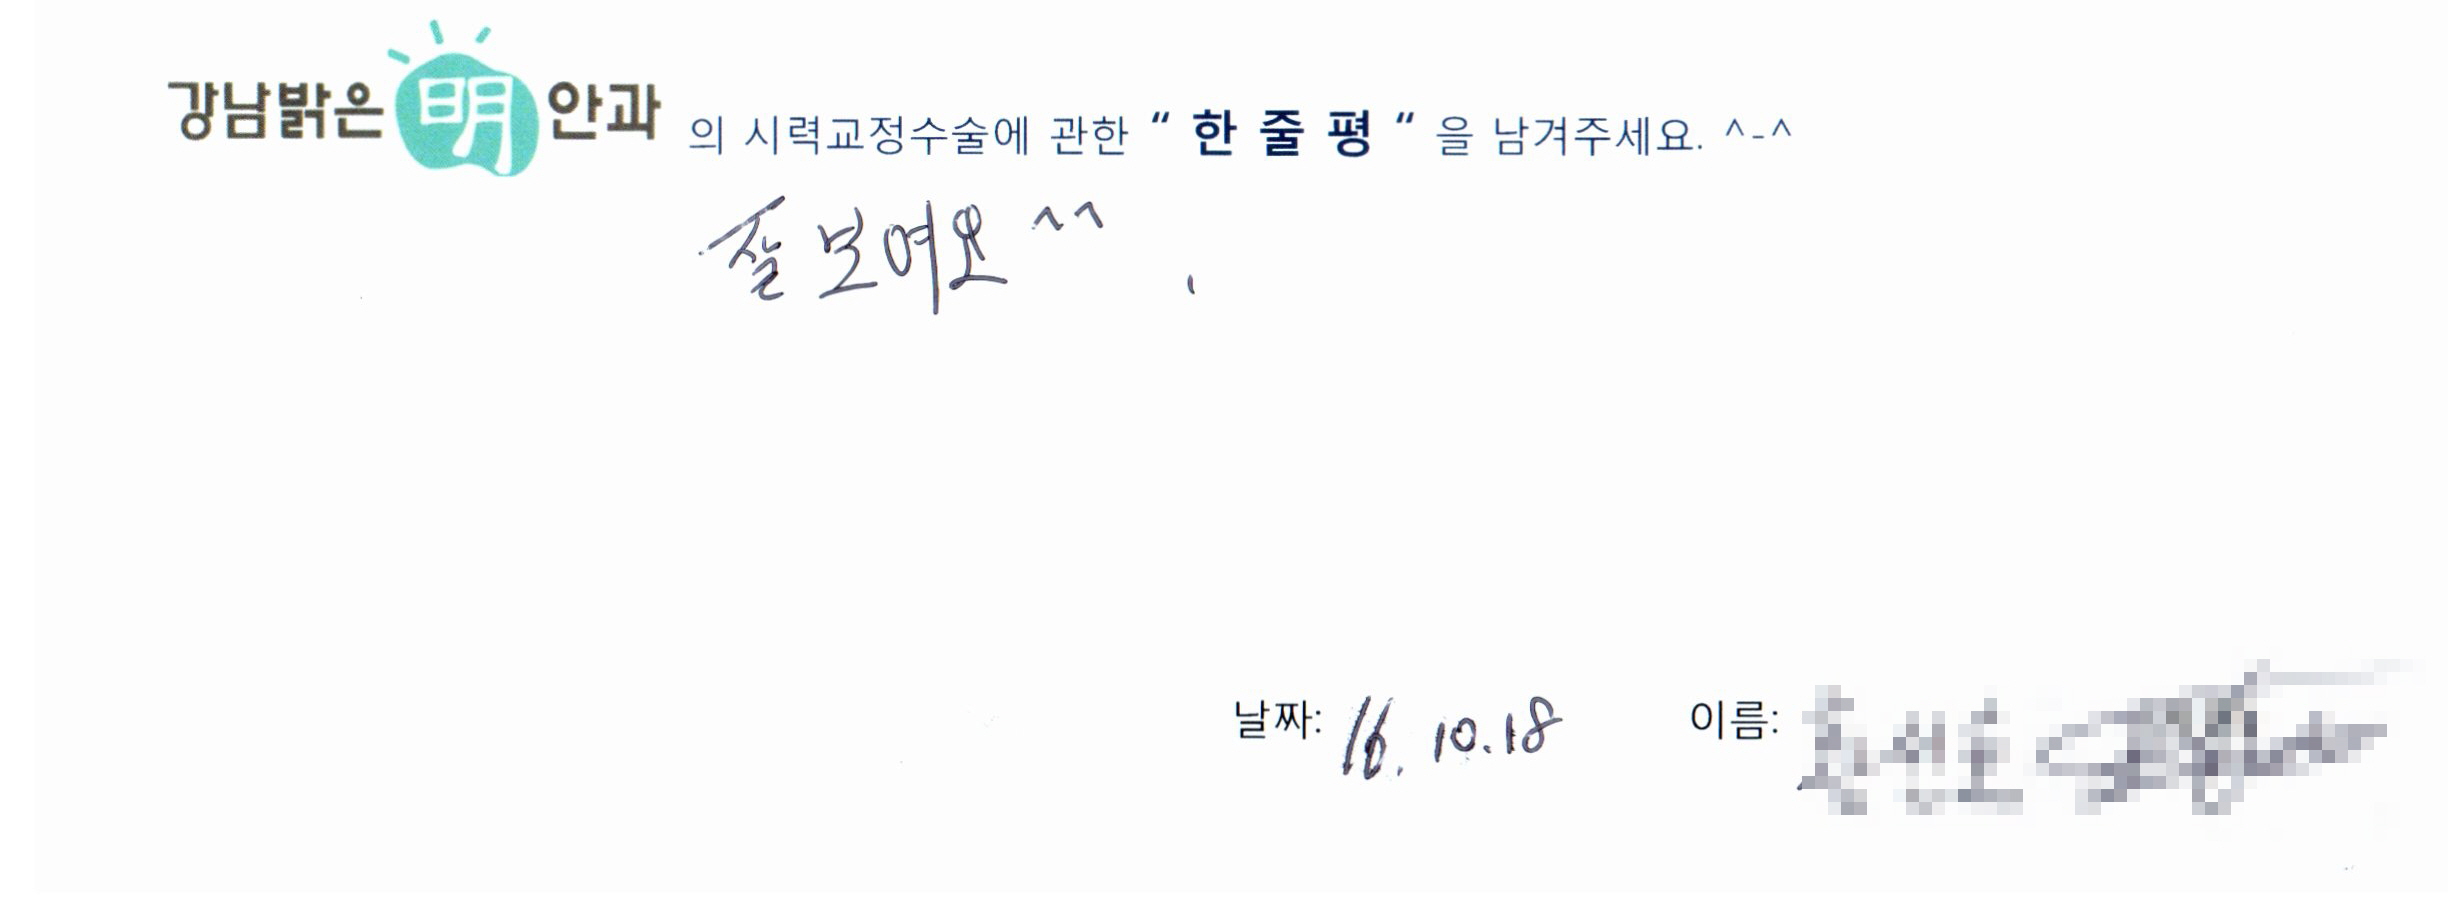 강남밝은明안과 의 시력교정수술에 관한 “ 한 줄 평 “ 을 남겨주세요. ^-^
잘 보여요 ^^
날짜: 16. 10. 18 이름: